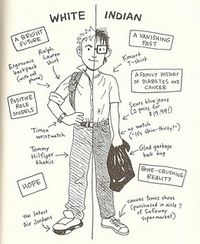 WHITE
INDIAN
A BRIGHT
FUTURE
Ergonomic
backpack
(with cell
phone)
Ralph
Lauren
shirt
POSITIVE
ROLE
MODELS
Timex
wristwatch
Tommy
Hilfiger
Khakis
HOPE
The latest
Air Jordans
A VANISHING
PAST
Kmart
T-shirt
A FAMILY HISTORY
OF DIABETES AND
CANCER
Sears blue jeans
(2 pairs for
$19.99!)
no watch
("it's skin-thirty!")
Glad garbage
book bag
BONE-CRUSHING
REALITY
canvas tennis shoes
(purchased in aisle 7
of Safeway
supermarket)